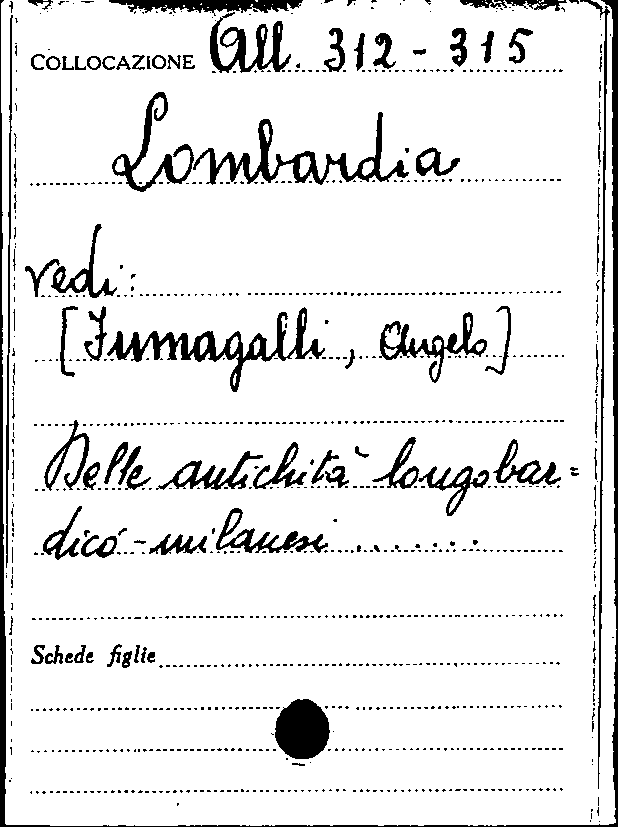 COLLOCAZIONE All. 312 - 315
Lombardia
vedi:
[Fumagalli, Angelo]
Delle antichità longobar=
dico-milanesi .......
Schede figlie